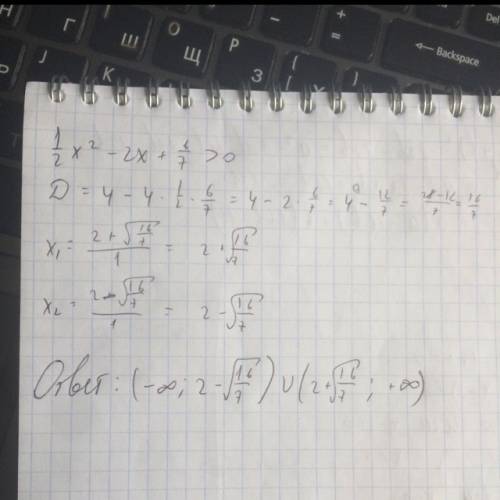 Г Ш О Щ Р З { [ + = - Backspace Del
J K X
1/2 x² - 2x + 6/7 > 0
D = 4 - 4 · 1/2 · 6/7 = 4 - 2 · 6/7 = 4 - 12/7 = 28-12/7 = 16/7
x₁ = 2 + √16/7 / 1 = 2 + √16/7
x₂ = 2 - √16/7 / 1 = 2 - √16/7
Ответ: (-∞; 2 - √16/7) ∪ (2 + √16/7; +∞)